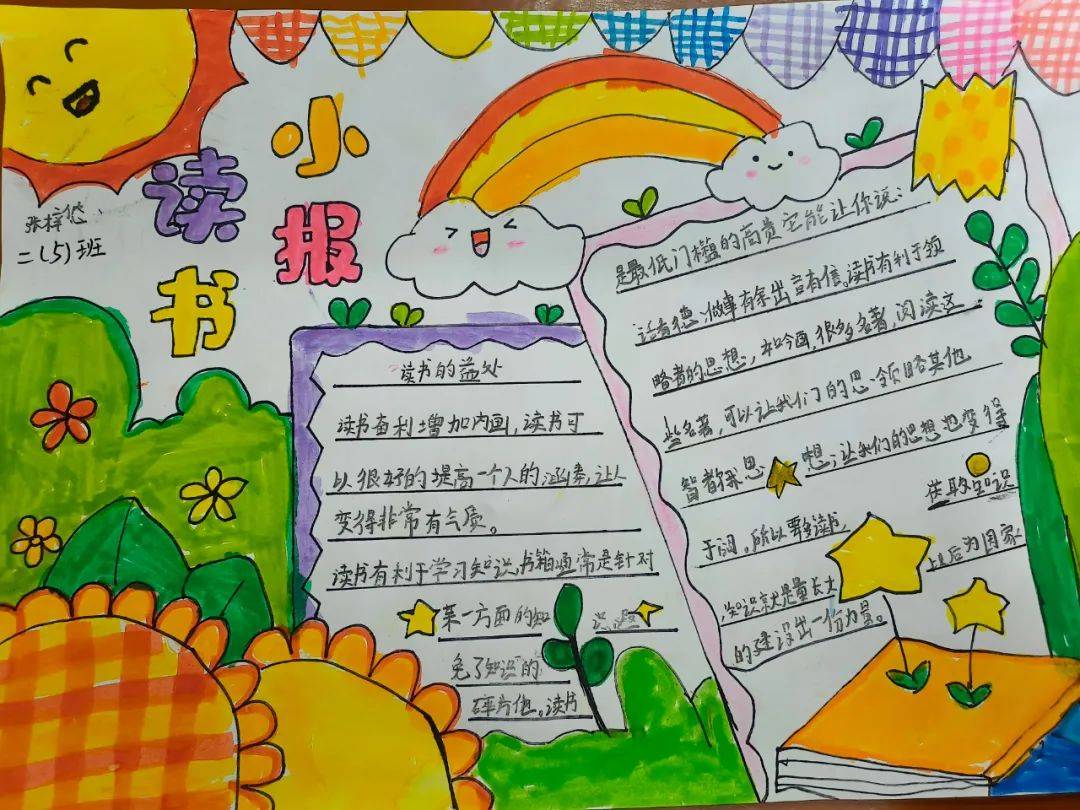 读书
小报
张梓悠
二(5)班
读书的益处
读书有利增加内画,读书可
以很好的提高一个人的涵养,让人
变得非常有气质。
读书有利于学习知识,书籍通常是针对
某一方面的知
免了知识的
碎片化。读书
是最低门槛的高贵它能让你说:
话有德:做事有余出言有信。读书有利于领
略者的思想,很多名著,阅读这
些名著,可以让我们的思领略其他
智者 思 想,让我们的思想也变得
于阔。所以要多读书, 获取知识
,知识就是量长大 以后为国家
的建设出一份力量。